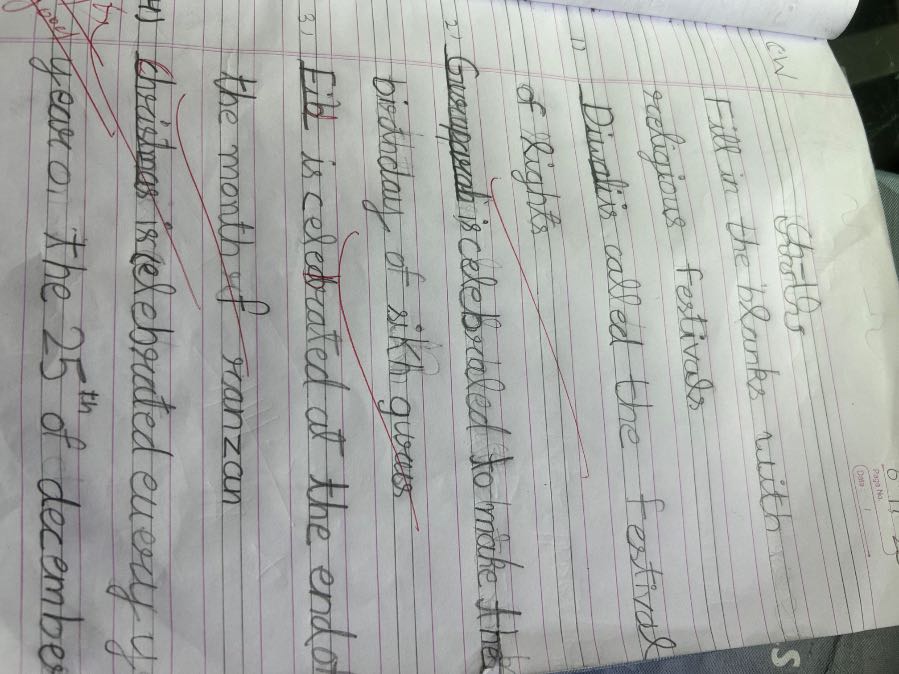 Page No.
Date
CW
Fill in the blanks with
religious festivals
1) Diwali is called the festival
of lights
2) Gurupurab is celebraled to make the
birthday of sikh gurus
3) Eid is celebrated at the end of
the month of ranzan
4) Christmas is celebrated every y
year on the 25th of december
good
S